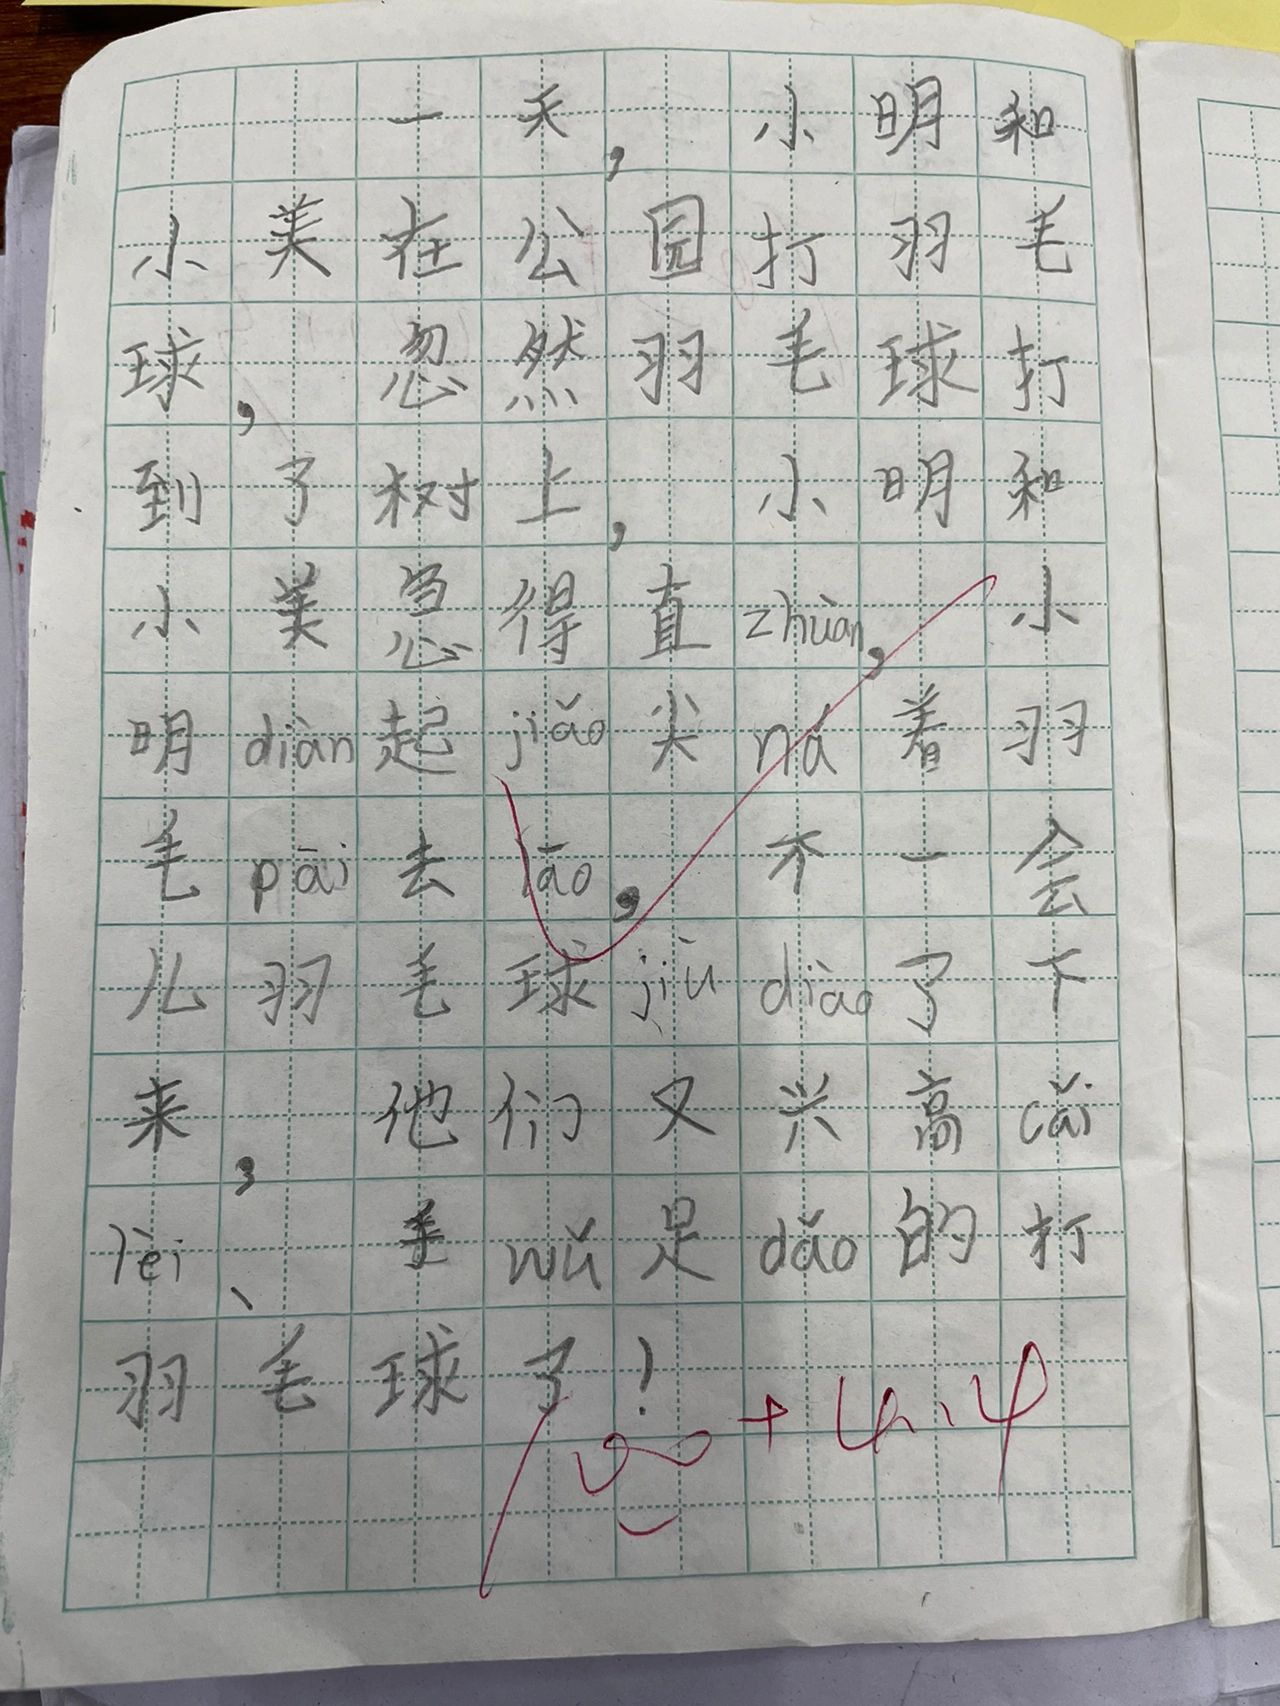 一天,小明和
小美在公园打羽毛
球,忽然羽毛球打
到了树上,小明和
小美急得直zhuàn,小
明diàn起jiǎo尖ná着羽
毛pāi去lāo,不一会
儿羽毛球jiù diào了下
来,他们又兴高cǎi
lèi、手wǔ足dǎo的打
羽毛球了!